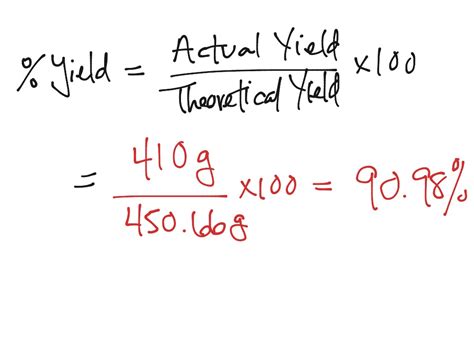 % Yield = Actual Yield / Theoretical Yield x100
= 410g / 450.66g x100 = 90.98%